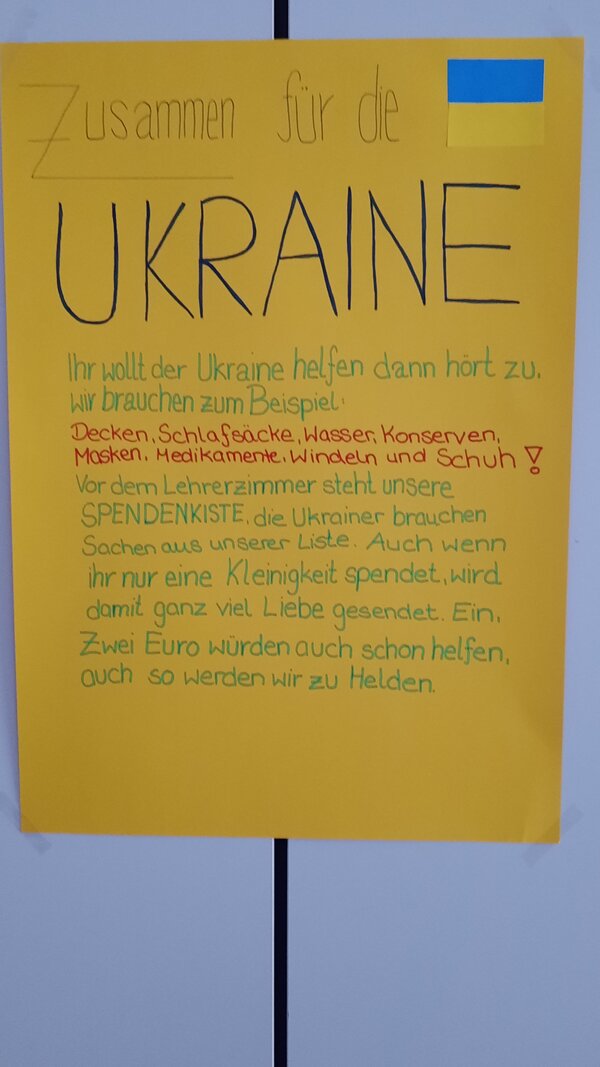 Zusammen für die
UKRAINE
Ihr wollt der Ukraine helfen dann hört zu.
wir brauchen zum Beispiel:
Decken, Schlafsäcke, Wasser, Konserven,
Masken, Medikamente, Windeln und Schuh!
Vor dem Lehrerzimmer steht unsere
SPENDENKISTE, die Ukrainer brauchen
Sachen aus unserer Liste. Auch wenn
ihr nur eine Kleinigkeit spendet, wird
damit ganz viel Liebe gesendet. Ein,
Zwei Euro würden auch schon helfen,
auch so werden wir zu Helden.